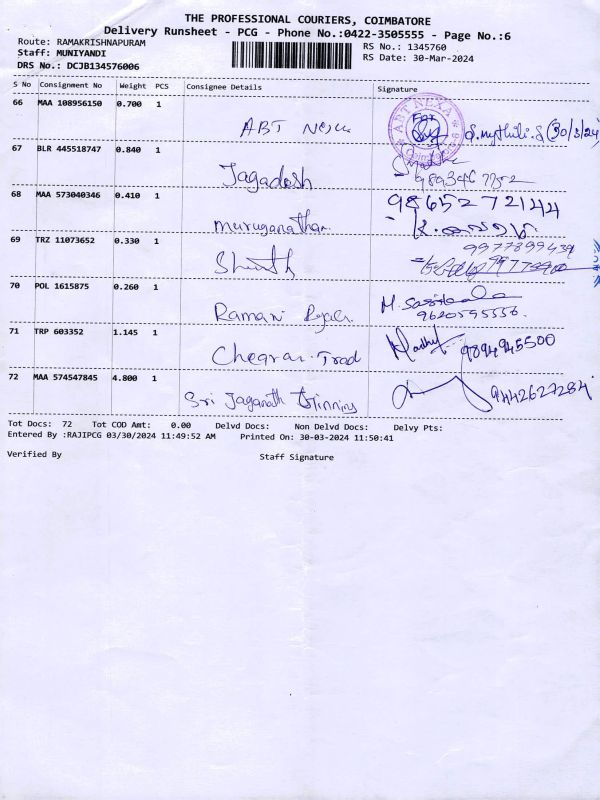 THE PROFESSIONAL COURIERS, COIMBATORE
Delivery Runsheet - PCG - Phone No.:0422-3505555 - Page No.:6
Route: RAMAKRISHNAPURAM
RS No.: 1345760
Staff: MUNIYANDI
RS Date: 30-Mar-2024
DRS No.: DCJB134576006
S No Consignment No Weight PCS Consignee Details Signature
66 MAA 108956150 0.700 1 ABT ABT NEXA For S.mythili.S (30/3/24)
67 BLR 445518747 0.840 1 Jagadesh
68 MAA 573040346 0.410 1 Muruganathan 9865272144
69 TRZ 11073652 0.330 1 9977899439
70 POL 1615875 0.260 1 Ramani 9620595556
71 TRP 603352 1.145 1 Trad 9894945500
72 MAA 574547845 4.800 1 Sri Jaganath 9442627284
Tot Docs: 72 Tot COD Amt: 0.00 Delvd Docs: Non Delvd Docs: Delvy Pts:
Entered By :RAJIPCG 03/30/2024 11:49:52 AM Printed On: 30-03-2024 11:50:41
Verified By Staff Signature